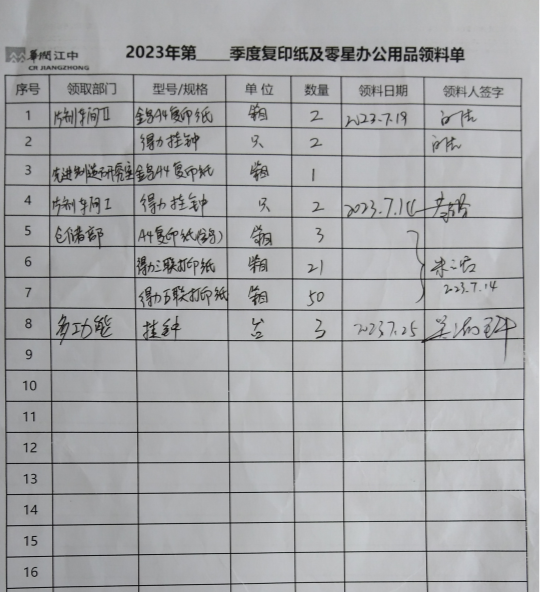 華润江中
CR JIANGZHONG
2023年第____季度复印纸及零星办公用品领料单
序号 领取部门 型号/规格 单位 数量 领料日期 领料人签字
1 片剂车间Ⅱ 金号A4复印纸 箱 2 2023.7.19
2 得力挂钟 只 2
3 先进制造研究室 金号A4复印纸 箱 1
4 片剂车间Ⅰ 得力挂钟 只 2 2023.7.14
5 仓储部 A4复印纸(金号) 箱 3
6 得力三联打印纸 箱 21
7 得力五联打印纸 箱 50 2023.7.14
8 多功能 挂钟 台 3 2023.7.25
9
10
11
12
13
14
15
16